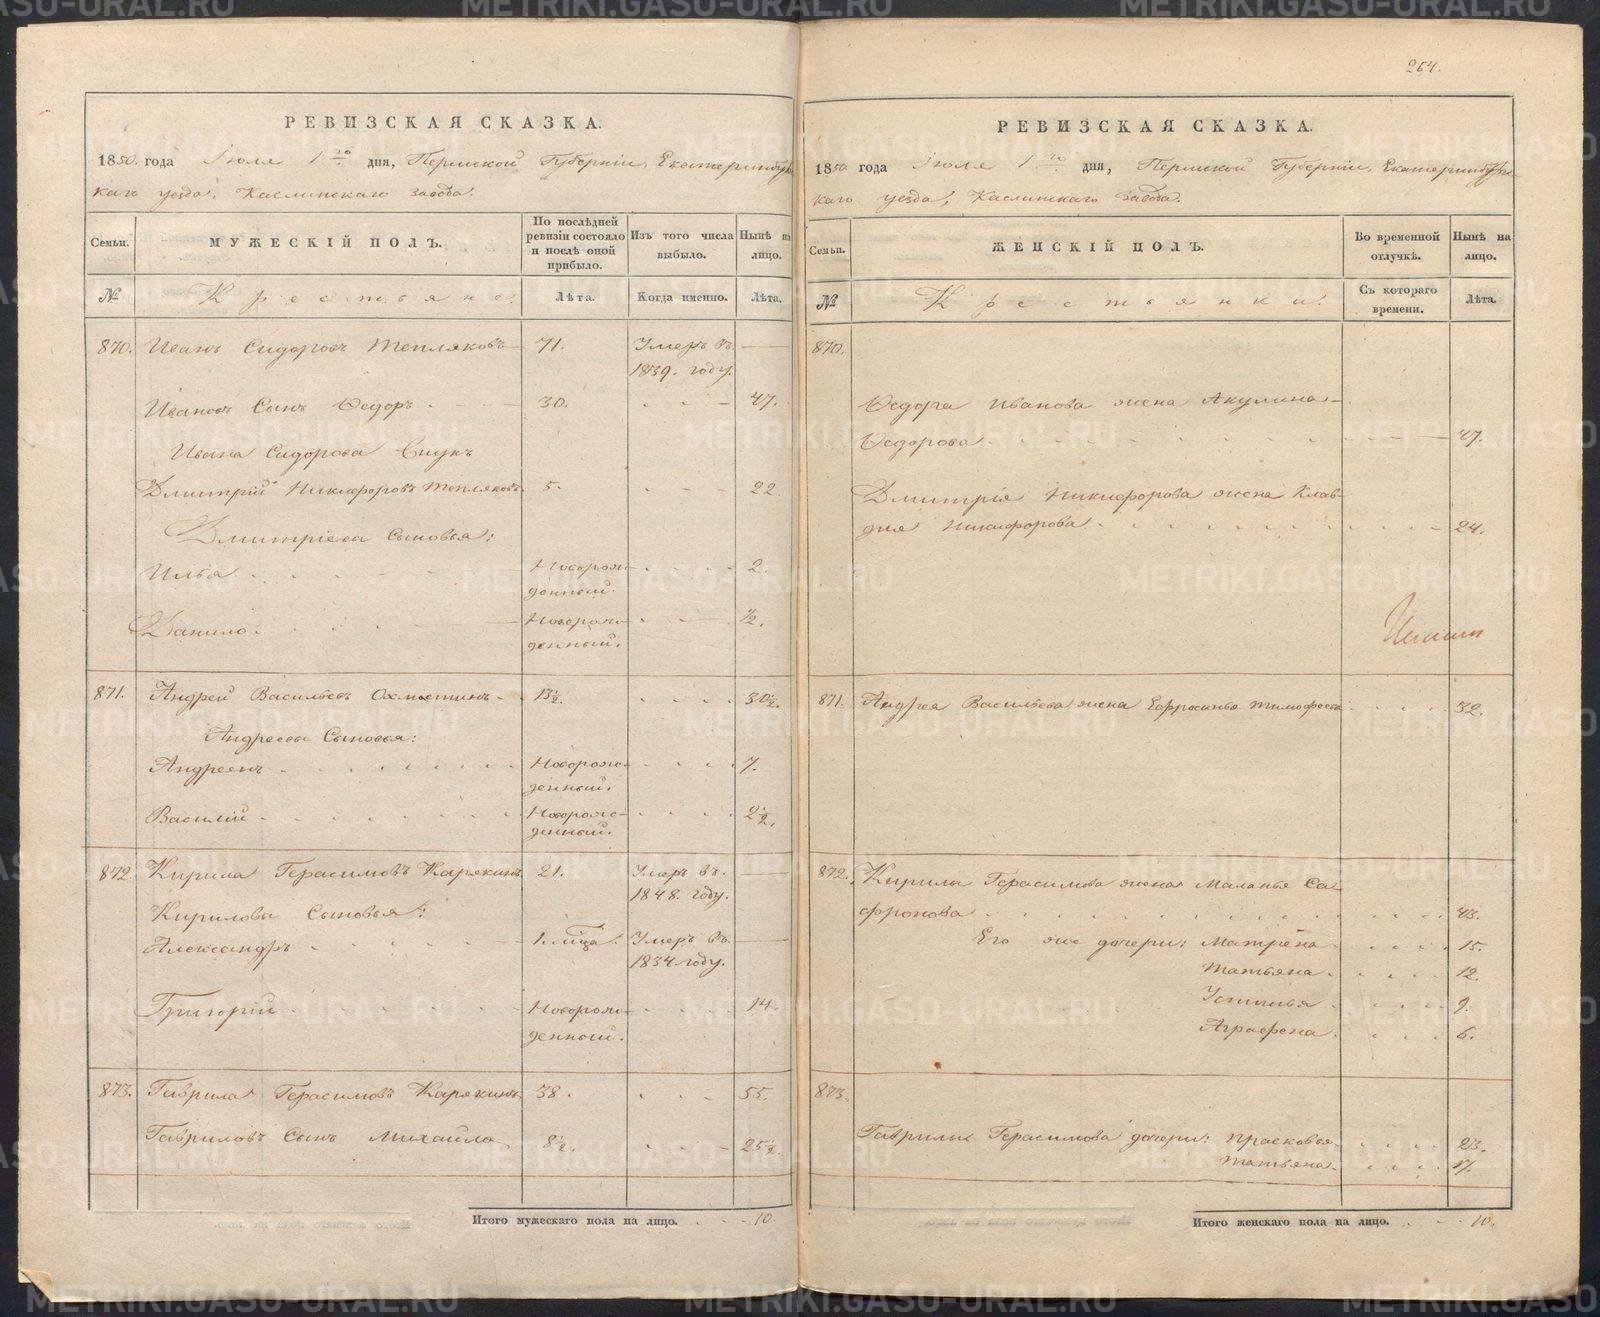 264.
РЕВИЗСКАЯ СКАЗКА.
1850. года Іюля 1го дня, Пермской Губерніи, Екатеринбург
скаго уезда, Каслинскаго завода.
Семьи.
МУЖЕСКІЙ ПОЛЪ.
По послѣдней ревизіи состояло и послѣ оной прибыло.
Изъ того числа выбыло.
Нынѣ на лицо.
№
Крестьяне.
Лѣта.
Когда именно.
Лѣта.
870. Иванъ Сидоровъ Тепляковъ 71. Умеръ въ
1839. году.
Ивановъ Сынъ Ѳедоръ 30. 47.
Ивана Сидорова Внукъ
Дмитрій Никифоровъ Тепляковъ 5. 22.
Дмитріева Сыновья:
Илья Новорож- 2.
денный.
Данило. Новорож- ½.
денный.
871. Андрей Васильевъ Охлюстинъ 13½. 30½.
Андреевы Сыновья:
Андреянъ Новорож- 7.
денный.
Василій Новорож- 2½.
денный.
872. Кирила Герасимовъ Карякинъ 21. Умеръ въ
1848. году.
Кириловы Сыновья:
Александръ 1 мѣца. Умеръ въ
1834 году.
Григорій Новорож- 14.
денный.
873. Гаврила Герасимовъ Карякинъ 38. 55.
Гавриловъ Сынъ Михайло 8½. 25½.
Итого мужескаго пола на лицо. 10.
РЕВИЗСКАЯ СКАЗКА.
1850 года Іюля 1го дня, Пермской Губерніи, Екатеринбургс
каго уезда, Каслинскаго завода.
Семьи.
ЖЕНСКІЙ ПОЛЪ.
Во временной отлучкѣ.
Нынѣ на лицо.
№
Крестьянки.
Съ котораго времени.
Лѣта.
870.
Ѳедора Иванова жена Акулина
Ѳедорова 47.
Дмитрія Никифорова жена Клав-
дія Никифорова 24.
871. Андрея Васильева жена Ефросинья Тимофеева 32.
872. Кирилы Герасимова жена Маланья Са
фронова 43.
Его же дочери: Матрена 15.
Татьяна 12.
Устинья 9.
Аграфена 6.
873.
Гаврилы Герасимова дочери: Прасковья 23.
Татьяна 17.
Итого женскаго пола на лицо. 10.
METRIKI.GASO-URAL.RU